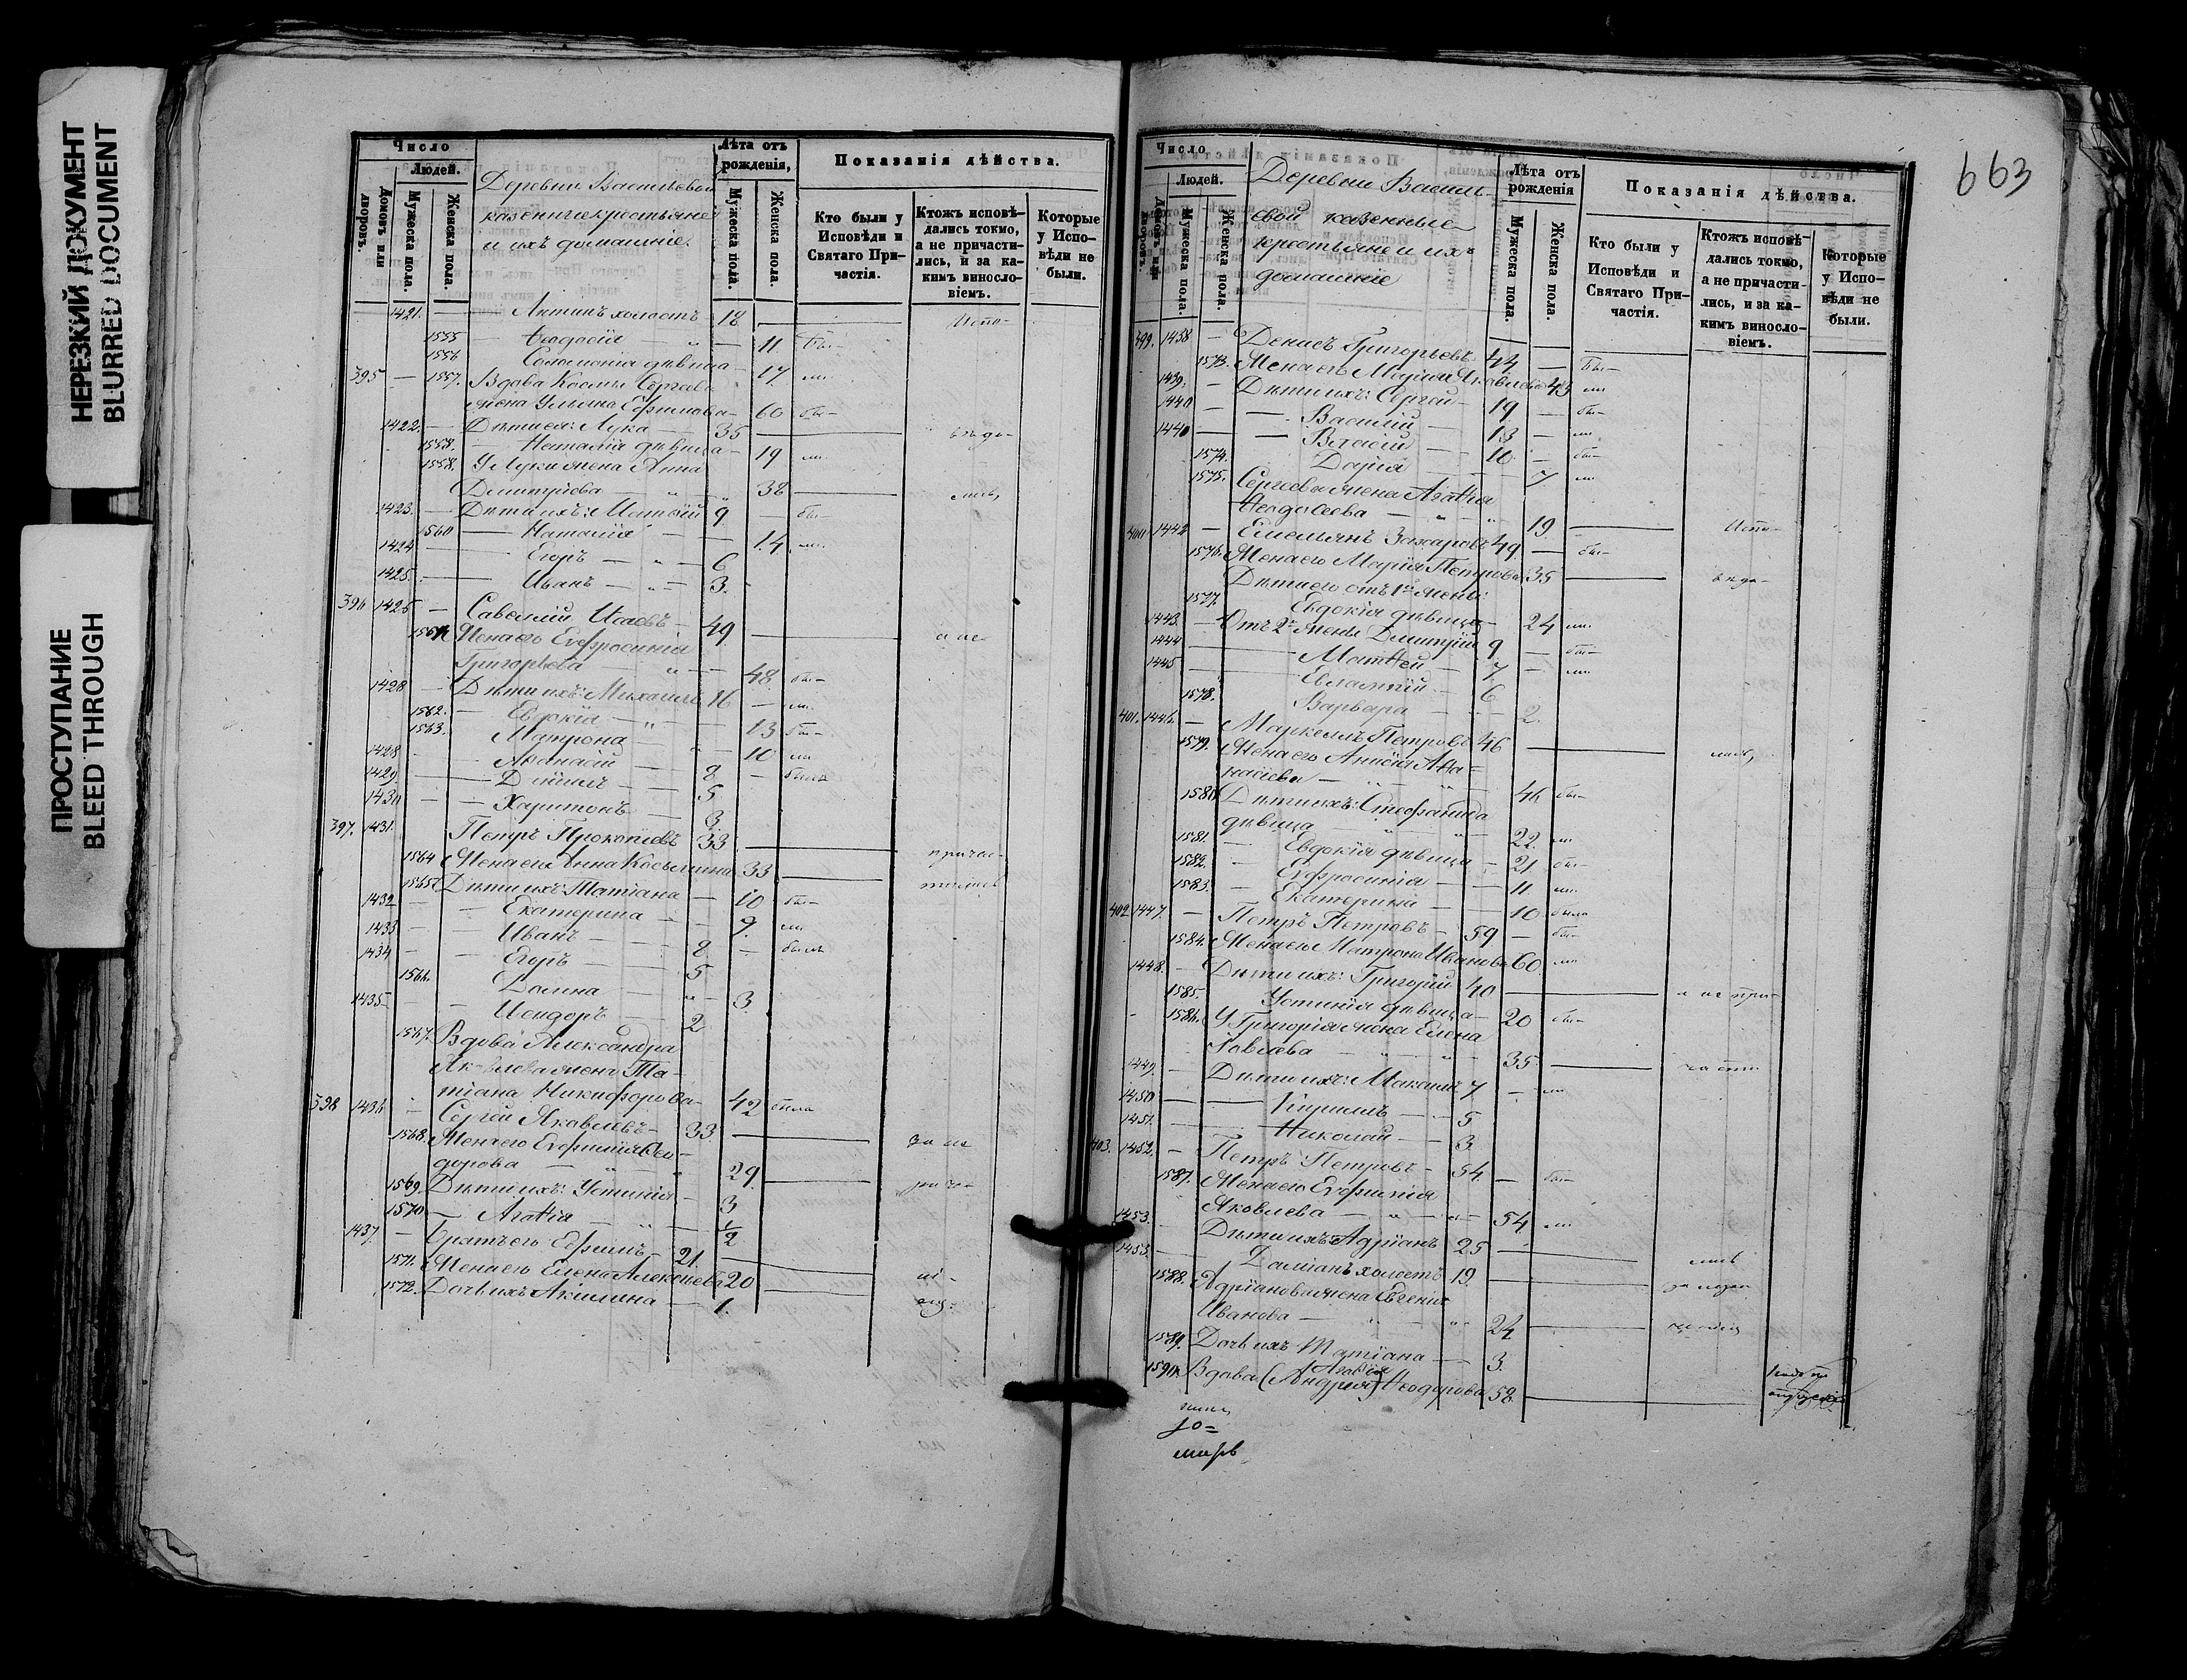 НЕРЕЗКИЙ ДОКУМЕНТ
BLURRED DOCUMENT
ПРОСТУПАНИЕ
BLEED THROUGH
Число
Людей.
Домовъ или дворовъ.
Мужеска пола.
Женска пола.
Деревни Васильевой
казенные крестьяне
и ихъ домашніе.
Лѣта отъ рожденія,
Мужеска пола.
Женска пола.
Показанія дѣйства.
Кто были у Исповѣди и Святаго При-частія.
Ктожъ исповѣ-дались токмо, а не причасти-лись, и за ка-кимъ винословіемъ.
Которые у Испо-вѣди не были.
1421. — Антипъ холостъ 18 — Испо-
1555 — Ѳеодосія — " — 11 бы-
1556 Соломонія дѣвица — 17. ли
395 — 1557. Вдова Космы Сергѣева
жена Ульяна Ефимова — 60 бы-
1422. — Дѣти ея: Лука — 35 — вѣда-
1558. — Наталія дѣвица — 19 ли
1558. У Луки жена Анна
Димитріева — " — 38 — лись,
1423. — Дѣти ихъ: Матѳій 9 — бы-
1560 — Наталія — 14 ли
1424 — Егоръ — " — 6
1425. — Иванъ — " — 3.
396 1425 — Савелій Исаевъ — 49 — а не-
1561 Жена его Евфросинія
Григорьева — " — 48 бы-
1428 — Дѣти ихъ: Михаилъ 16 — ли
1562. — Евдокія — " — 13 бы-
1563. Матрона — " — 10 ли
1428 — Аѳанасій — 8 — былъ
1429 — Даніилъ — 5
1430 — Харитонъ — 3
397. 1431. Петръ Прокопіевъ 33 — причас-
1564 Жена его Анна Косьмина 33 — тились
1565 Дѣти ихъ: Татіана — 10 бы-
1432 — Екатерина — 9. ли
1433 — Иванъ — 8 — былъ
1434 — Егоръ — 5
1566. Домна — " — 3
1435 — Исидоръ — 2
1567. Вдова Александра
Яковлева жена Та-
тіана Никифорова — 42 была
398 1436 — Сергѣй Яковлевъ — 33 — за не
1568. Жена его Евфимія Ѳео-
дорова — " — 29
1569. Дѣти ихъ: Устинія — 3
1570 — Агаѳія — " — 1/2
1437. — Братъ его Ефимъ — 21.
1571. Жена его Елена Алексѣева 20
1572. Дочь ихъ Акилина — 1.
663
Число
Людей.
Домовъ или дворовъ.
Мужеска пола.
Женска пола.
Деревни Василь-
евой казенные
крестьяне и ихъ
домашніе
Лѣта отъ рожденія
Мужеска пола.
Женска пола.
Показанія дѣйства.
Кто были у Исповѣди и Святаго При-частія.
Ктожъ исповѣ-дались токмо, а не причасти-лись, и за ка-кимъ винословіемъ.
Которые у Испо-вѣди не были.
399. 1438 — Денисъ Григорьевъ 44 — бы-
1573. Жена его Марія Яковлева 43 ли
1439. — Дѣти ихъ: Сергѣй — 19 — бы-
1440 — Василій — 13 — ли
1440 — Власій — 10 — бы-
1574. Дарія — 7 ли
1575. Сергѣева жена Агаѳія
Ѳеодосеева — " — 19 — Испо-
400 1442 — Емельянъ Захаровъ 49 — бы-
1576. Жена его Марія Петрова 35 — вѣда-
Дѣти его отъ 1й жены:
1577. Евдокія дѣвица — 24 ли
1443. — Отъ 2й жены Димитрій 9 — бы-
1444 — Матѳей — 7 — ли
1445 — Евлампій — 6
1578. Варвара — 2.
401. 1446. — Маркеллъ Петровъ 46 — лись,
1579. Жена его Анисія Аѳа-
насіева — " — 46 бы-
1580 Дѣти ихъ: Стефанида
дѣвица — " — 22 ли
1581. — Евдокія дѣвица — 21 бы-
1582. — Евфросинія — 11 ли
1583. — Екатерина — 10 была
402 1447. — Петръ Петровъ — 59 — бы-
1584. Жена его Матрона Иванова 60 ли
1448. — Дѣти ихъ: Григорій 40 — а не при-
1585. Устинія дѣвица — 20 бы-
1586. У Григорія жена Елена
Іовлева — " — 35 — части-
1449 — Дѣти ихъ: Максимъ 7 — ли
1450 — Кириллъ — 5
1451. — Николай — 3
403. 1452. — Петръ Петровъ — 54 — бы-
1587. Жена его Евфимія
Яковлева — " — 54 ли
1453. — Дѣти ихъ: Адріанъ 25 — лись
1453. — Даміанъ холостъ 19.
1588. Адріанова жена Евгенія
Иванова — " — 24
1589. Дочь ихъ Татіана — 3.
1590. Вдова (Андрея) Агафія Ѳеодорова 58